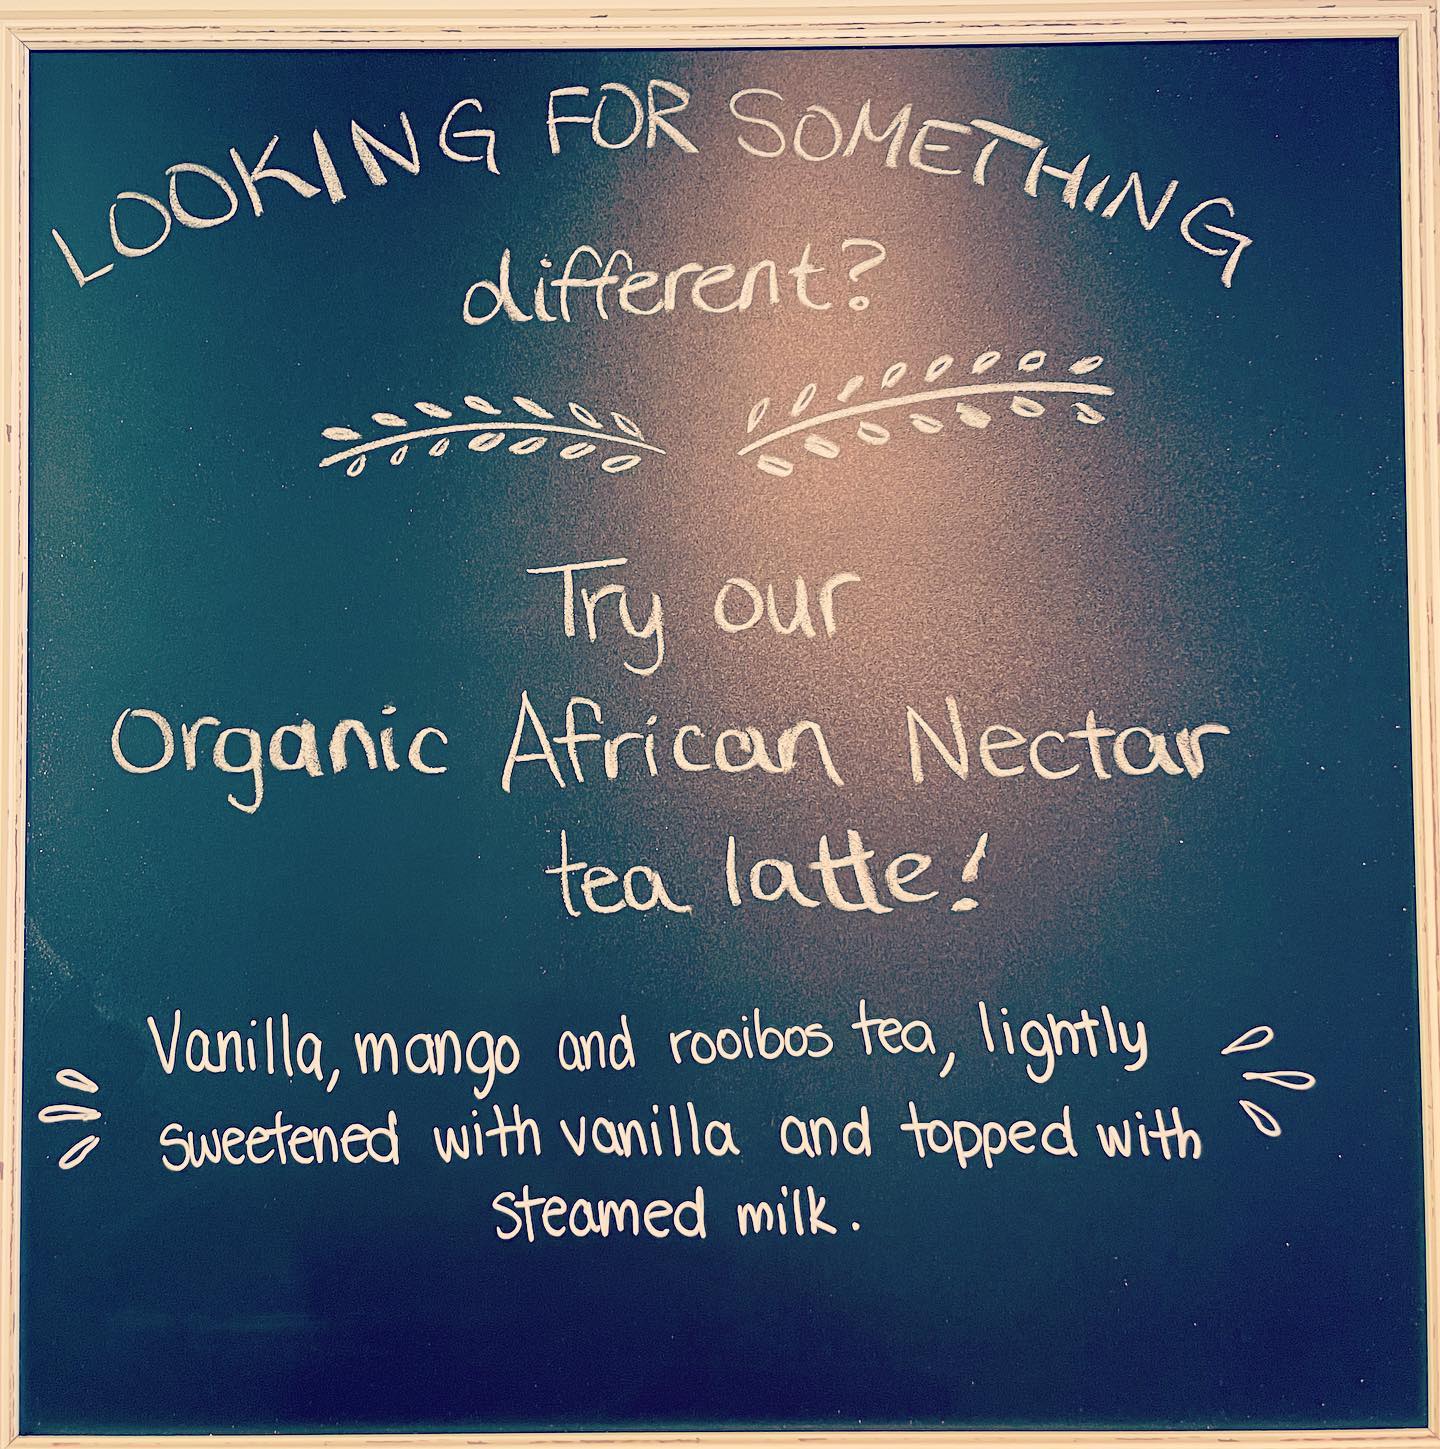 LOOKING FOR SOMETHING
different?
Try our
Organic African Nectar
tea latte!
Vanilla, mango and rooibos tea, lightly
sweetened with vanilla and topped with
steamed milk.